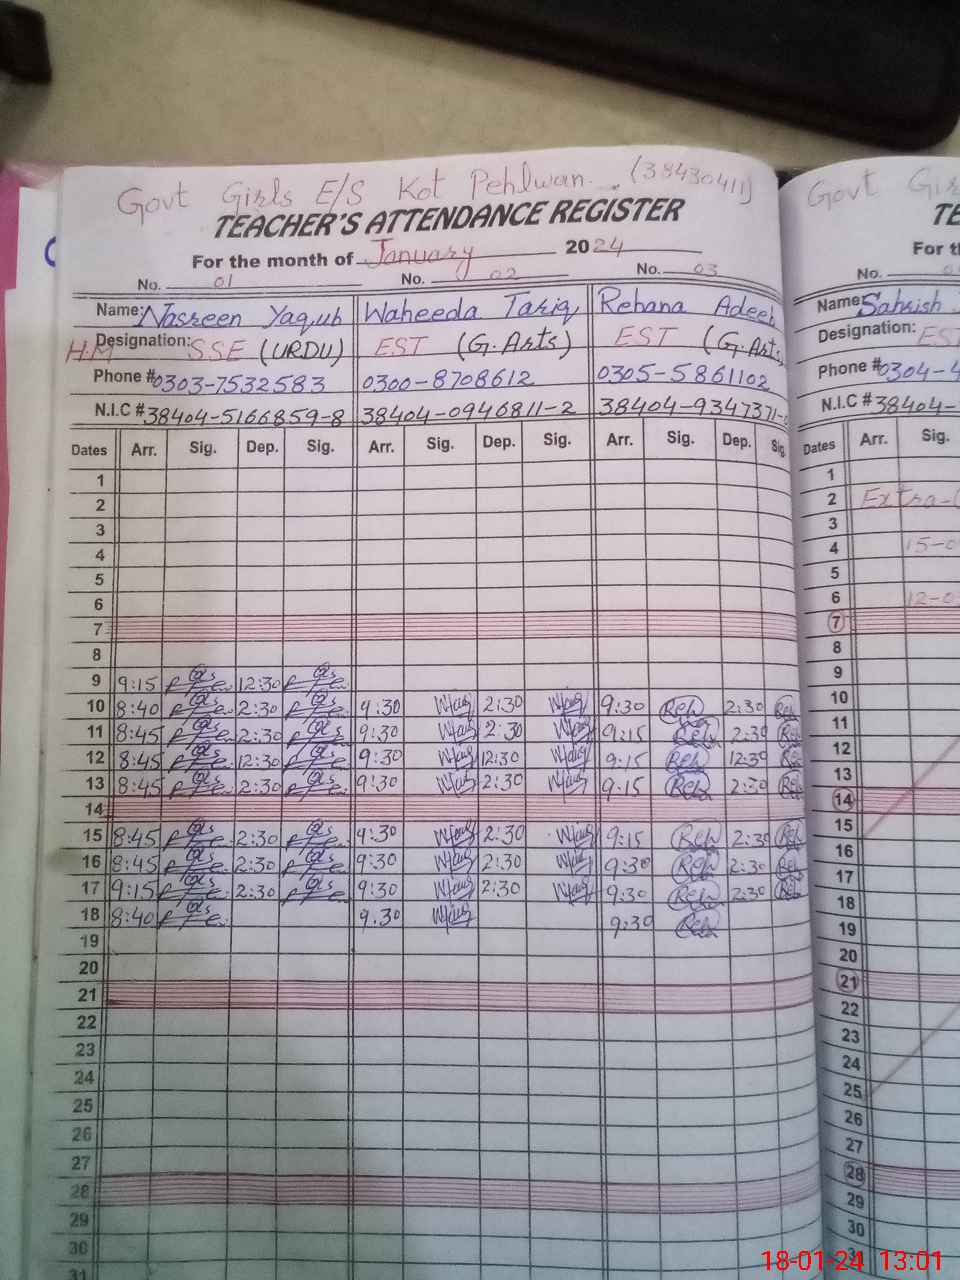 Govt Girls E/S Kot Pehlwan. (38430411)
TEACHER'S ATTENDANCE REGISTER
For the month of January 2024
No. 01 No. 02 No. 03
Name: Nasreen Yaqub Waheeda Tariq Rehana Adeeb
H.M Designation: SSE (URDU) EST (G.Arts) EST (G.Arts
Phone # 0303-7532583 0300-8708612 0305-5861102
N.I.C # 38404-5166859-8 38404-0946811-2 38404-9347371-
Dates Arr. Sig. Dep. Sig. Arr. Sig. Dep. Sig. Arr. Sig. Dep. Sig
1
2
3
4
5
6
7
8
9 9:15 12:30
10 8:40 2:30 9:30 2:30 9:30 Reh 2:30 Reh
11 8:45 2:30 9:30 2:30 9:15 Reh 2:30 Reh
12 8:45 12:30 9:30 12:30 9:15 Reh 12:30 Reh
13 8:45 2:30 9:30 2:30 9:15 Reh 2:30 Reh
14
15 8:45 2:30 9:30 2:30 9:15 Reh 2:30 Reh
16 8:45 2:30 9:30 2:30 9:30 Reh 2:30 Reh
17 9:15 2:30 9:30 2:30 9:30 Reh 2:30 Reh
18 8:40 9.30 9:30 Reh
19
20
21
22
23
24
25
26
27
28
29
30
31
Govt Gir
TE
For th
No.
Name: Sahrish
Designation: EST
Phone # 0304-4
N.I.C # 38404-
Dates Arr. Sig.
1
2 Extra-
3
4 15-0
5
6 12-0
7
8
9
10
11
12
13
14
15
16
17
18
19
20
21
22
23
24
25
26
27
28
29
30
3
18-01-24 13:01